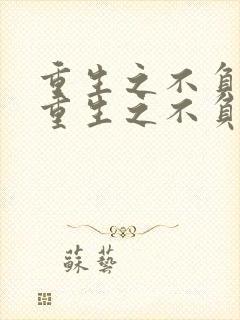 重生之不負
重生之不負
蘇藝